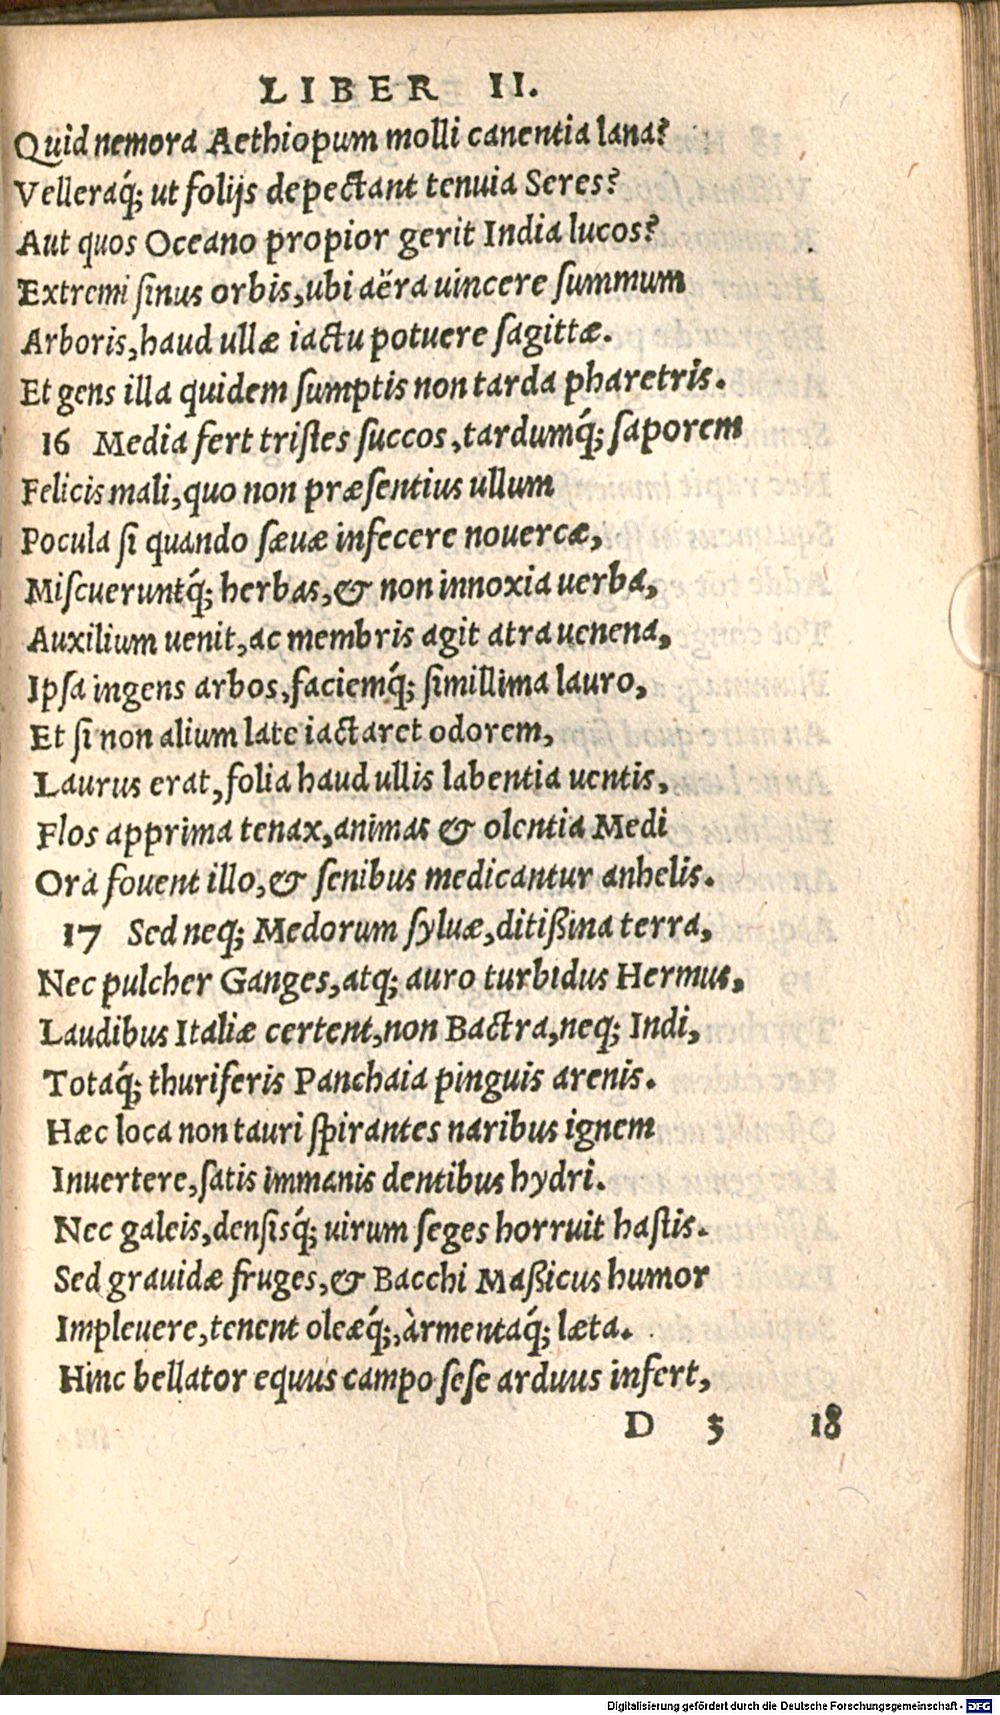 LIBER II.
Quid nemora Aethiopum molli canentia lana?
Velleraq́; ut folijs depectant tenuia Seres?
Aut quos Oceano propior gerit India lucos?
Extremi ſinus orbis, ubi aëra uincere ſummum
Arboris, haud ullæ iactu potuere ſagittæ.
Et gens illa quidem ſumptis non tarda pharetris.
16 Media fert triſtes ſuccos, tardumq́; ſaporem
Felicis mali, quo non præſentius ullum
Pocula ſi quando ſæuæ infecere nouercæ,
Miſcueruntq́; herbas, & non innoxia uerba,
Auxilium uenit, ac membris agit atra uenena,
Ipſa ingens arbos, faciemq́; ſimillima lauro,
Et ſi non alium late iactaret odorem,
Laurus erat, folia haud ullis labentia uentis,
Flos apprima tenax, animas & olentia Medi
Ora fouent illo, & ſenibus medicantur anhelis.
17 Sed neq; Medorum ſyluæ, ditißina terra,
Nec pulcher Ganges, atq; auro turbidus Hermus,
Laudibus Italiæ certent, non Bactra, neq; Indi,
Totaq́; thuriferis Panchaia pinguis arenis.
Hæc loca non tauri ſpirantes naribus ignem
Inuertere, ſatis immanis dentibus hydri.
Nec galeis, denſisq́; uirum ſeges horruit haſtis.
Sed grauidæ fruges, & Bacchi Maßicus humor
Impleuere, tenent oleæq́;, àrmentaq́; læta.
Hinc bellator equus campo ſeſe arduus infert,
D 5 18
Digitalisierung gefördert durch die Deutsche Forschungsgemeinschaft - DFG